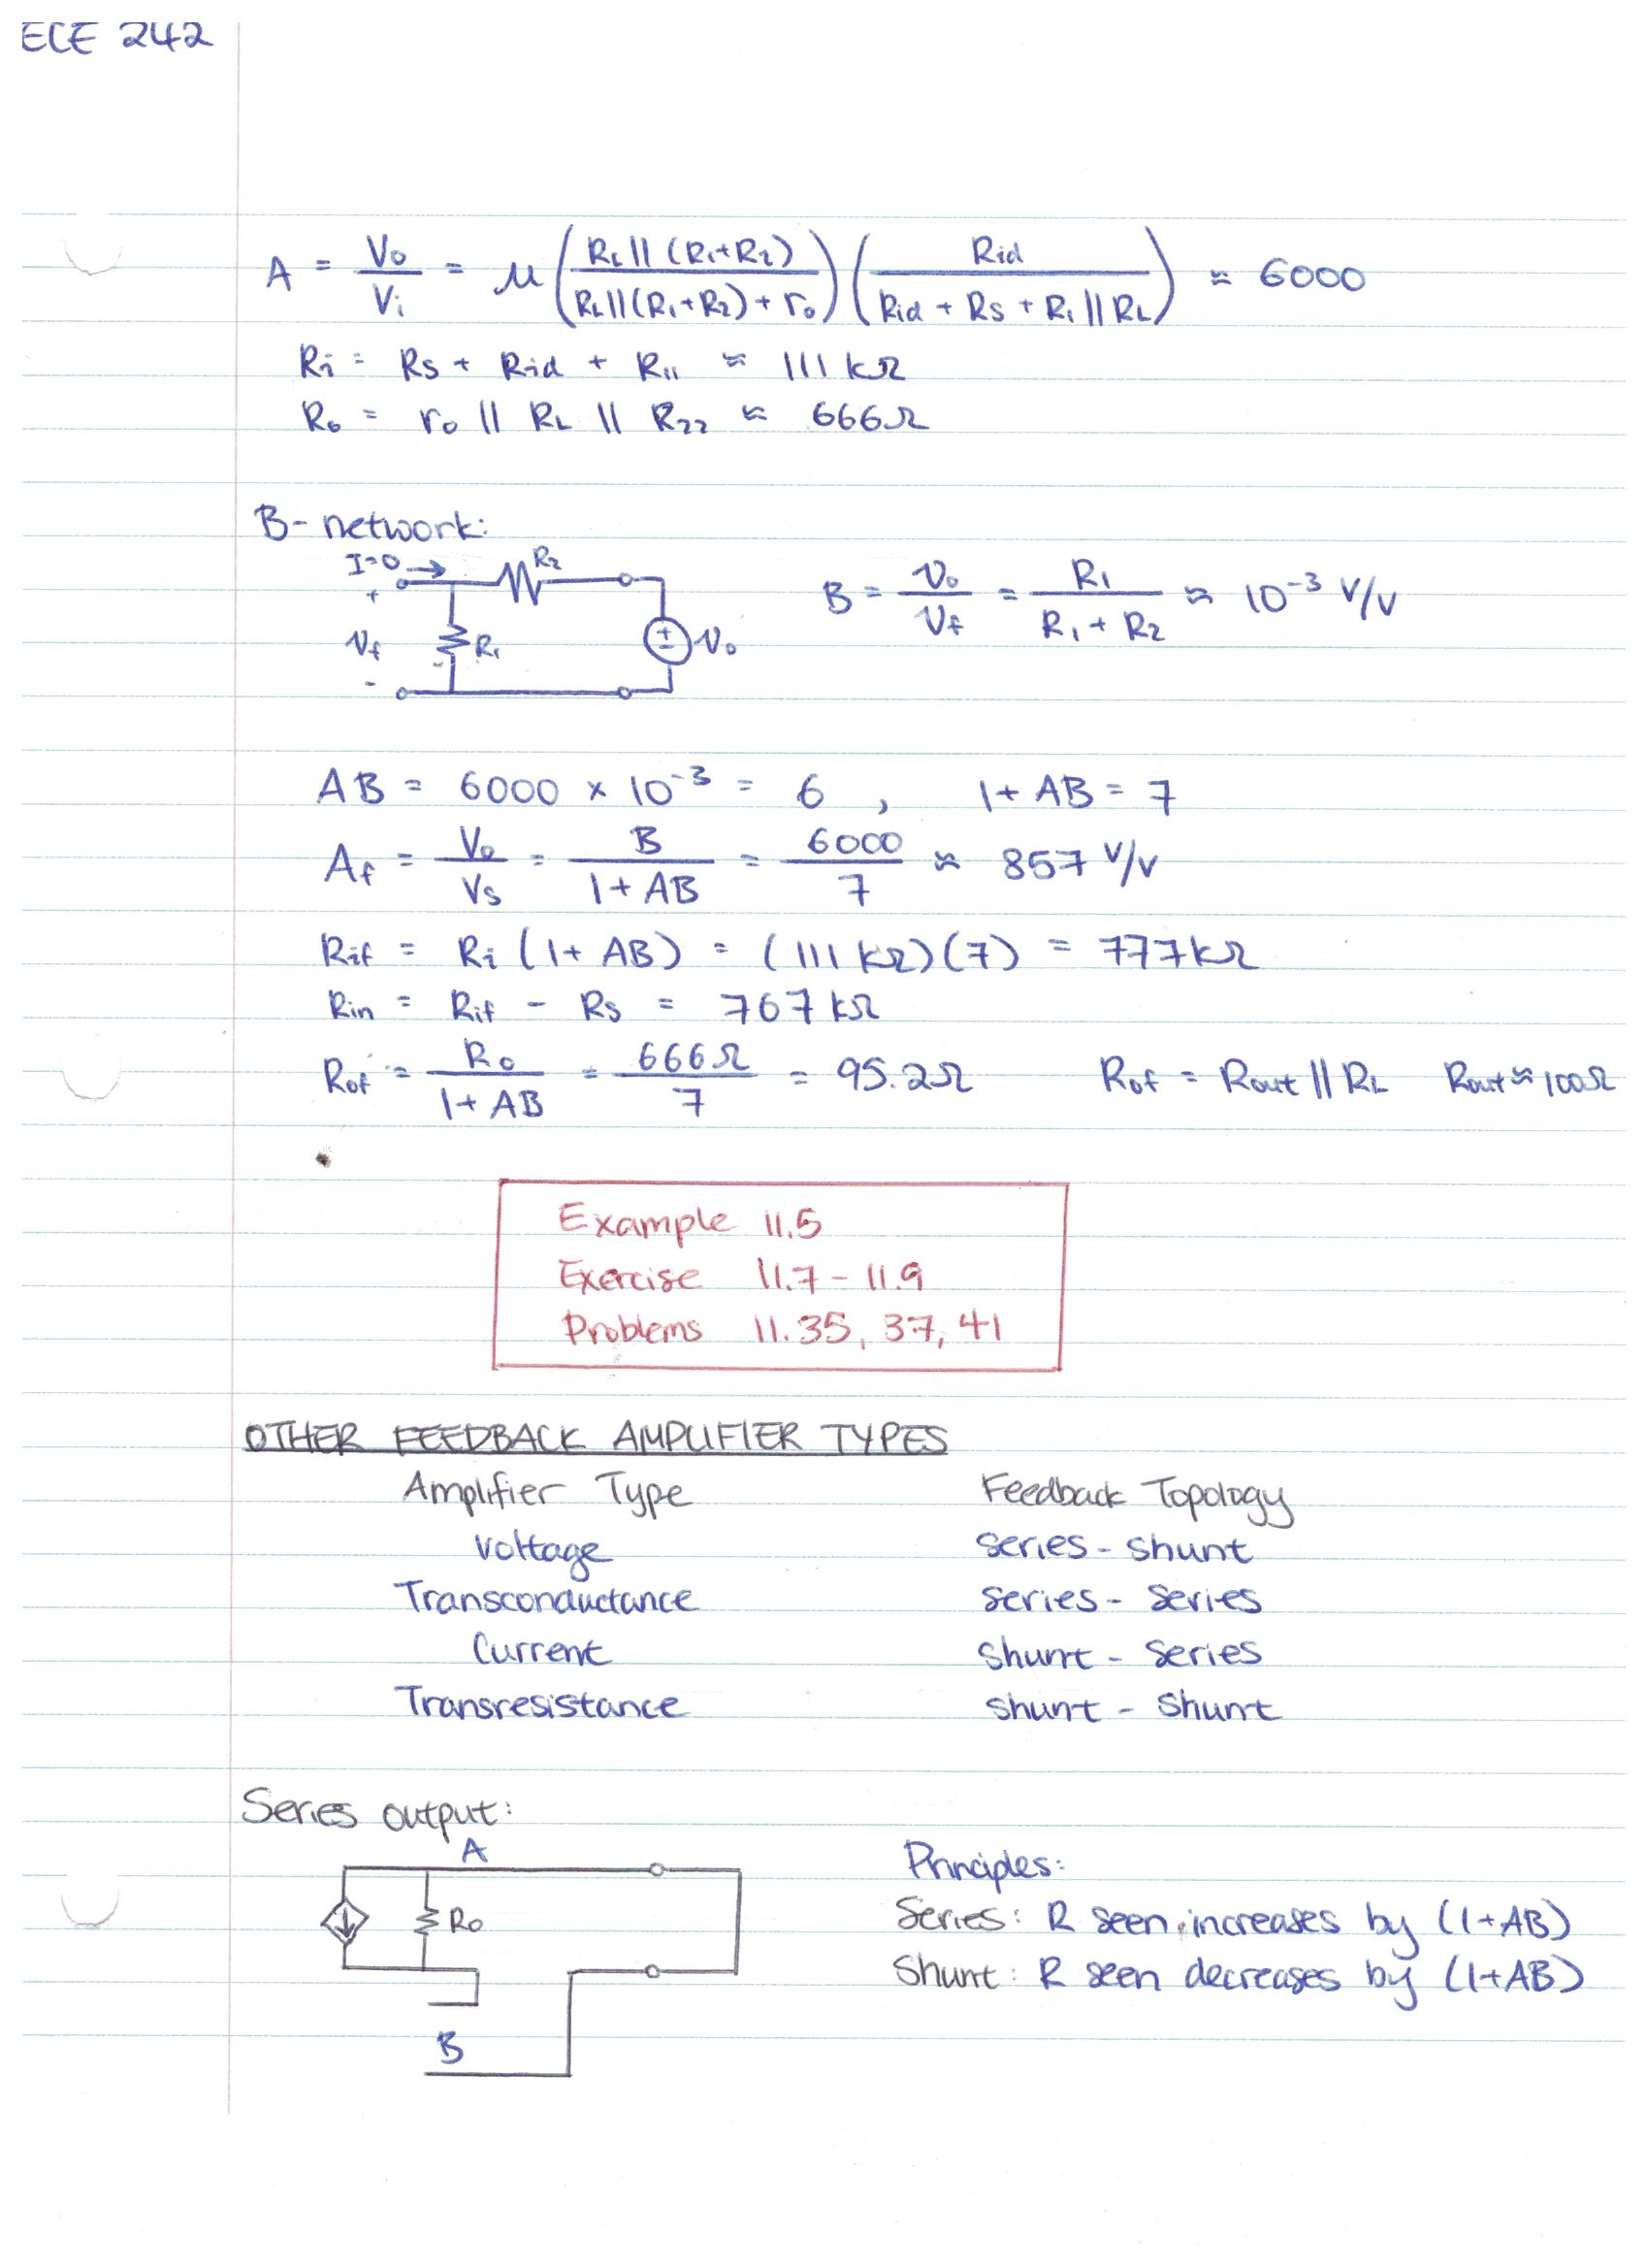 ECE 242
A = Vo/Vi = μ (RL||(R1+R2) / RL||(R1+R2) + ro) (Rid / Rid + Rs + R1||RL) ≈ 6000
Ri = Rs + Rid + R11 ≈ 111 kΩ
Ro = ro || RL || R22 ≈ 666Ω
B-network:
I=0 →
R2
+
Vf
-
R1
Vo
B = Vo/Vf = R1/(R1 + R2) ≈ 10^-3 V/V
AB = 6000 × 10^-3 = 6 , 1 + AB = 7
Af = Vo/Vs = B/(1 + AB) = 6000/7 ≈ 857 V/V
Rif = Ri (1 + AB) = (111 kΩ)(7) = 777kΩ
Rin = Rif - Rs = 767 kΩ
Rof = Ro/(1 + AB) = 666Ω/7 = 95.2Ω Rof = Rout || RL Rout ≈ 100Ω
Example 11.5
Exercise 11.7 - 11.9
Problems 11.35, 37, 41
OTHER FEEDBACK AMPLIFIER TYPES
Amplifier Type Feedback Topology
Voltage series - shunt
Transconductance series - series
Current shunt - series
Transresistance shunt - shunt
Series output:
A
Ro
B
Principles:
Series: R seen increases by (1+AB)
Shunt: R seen decreases by (1+AB)